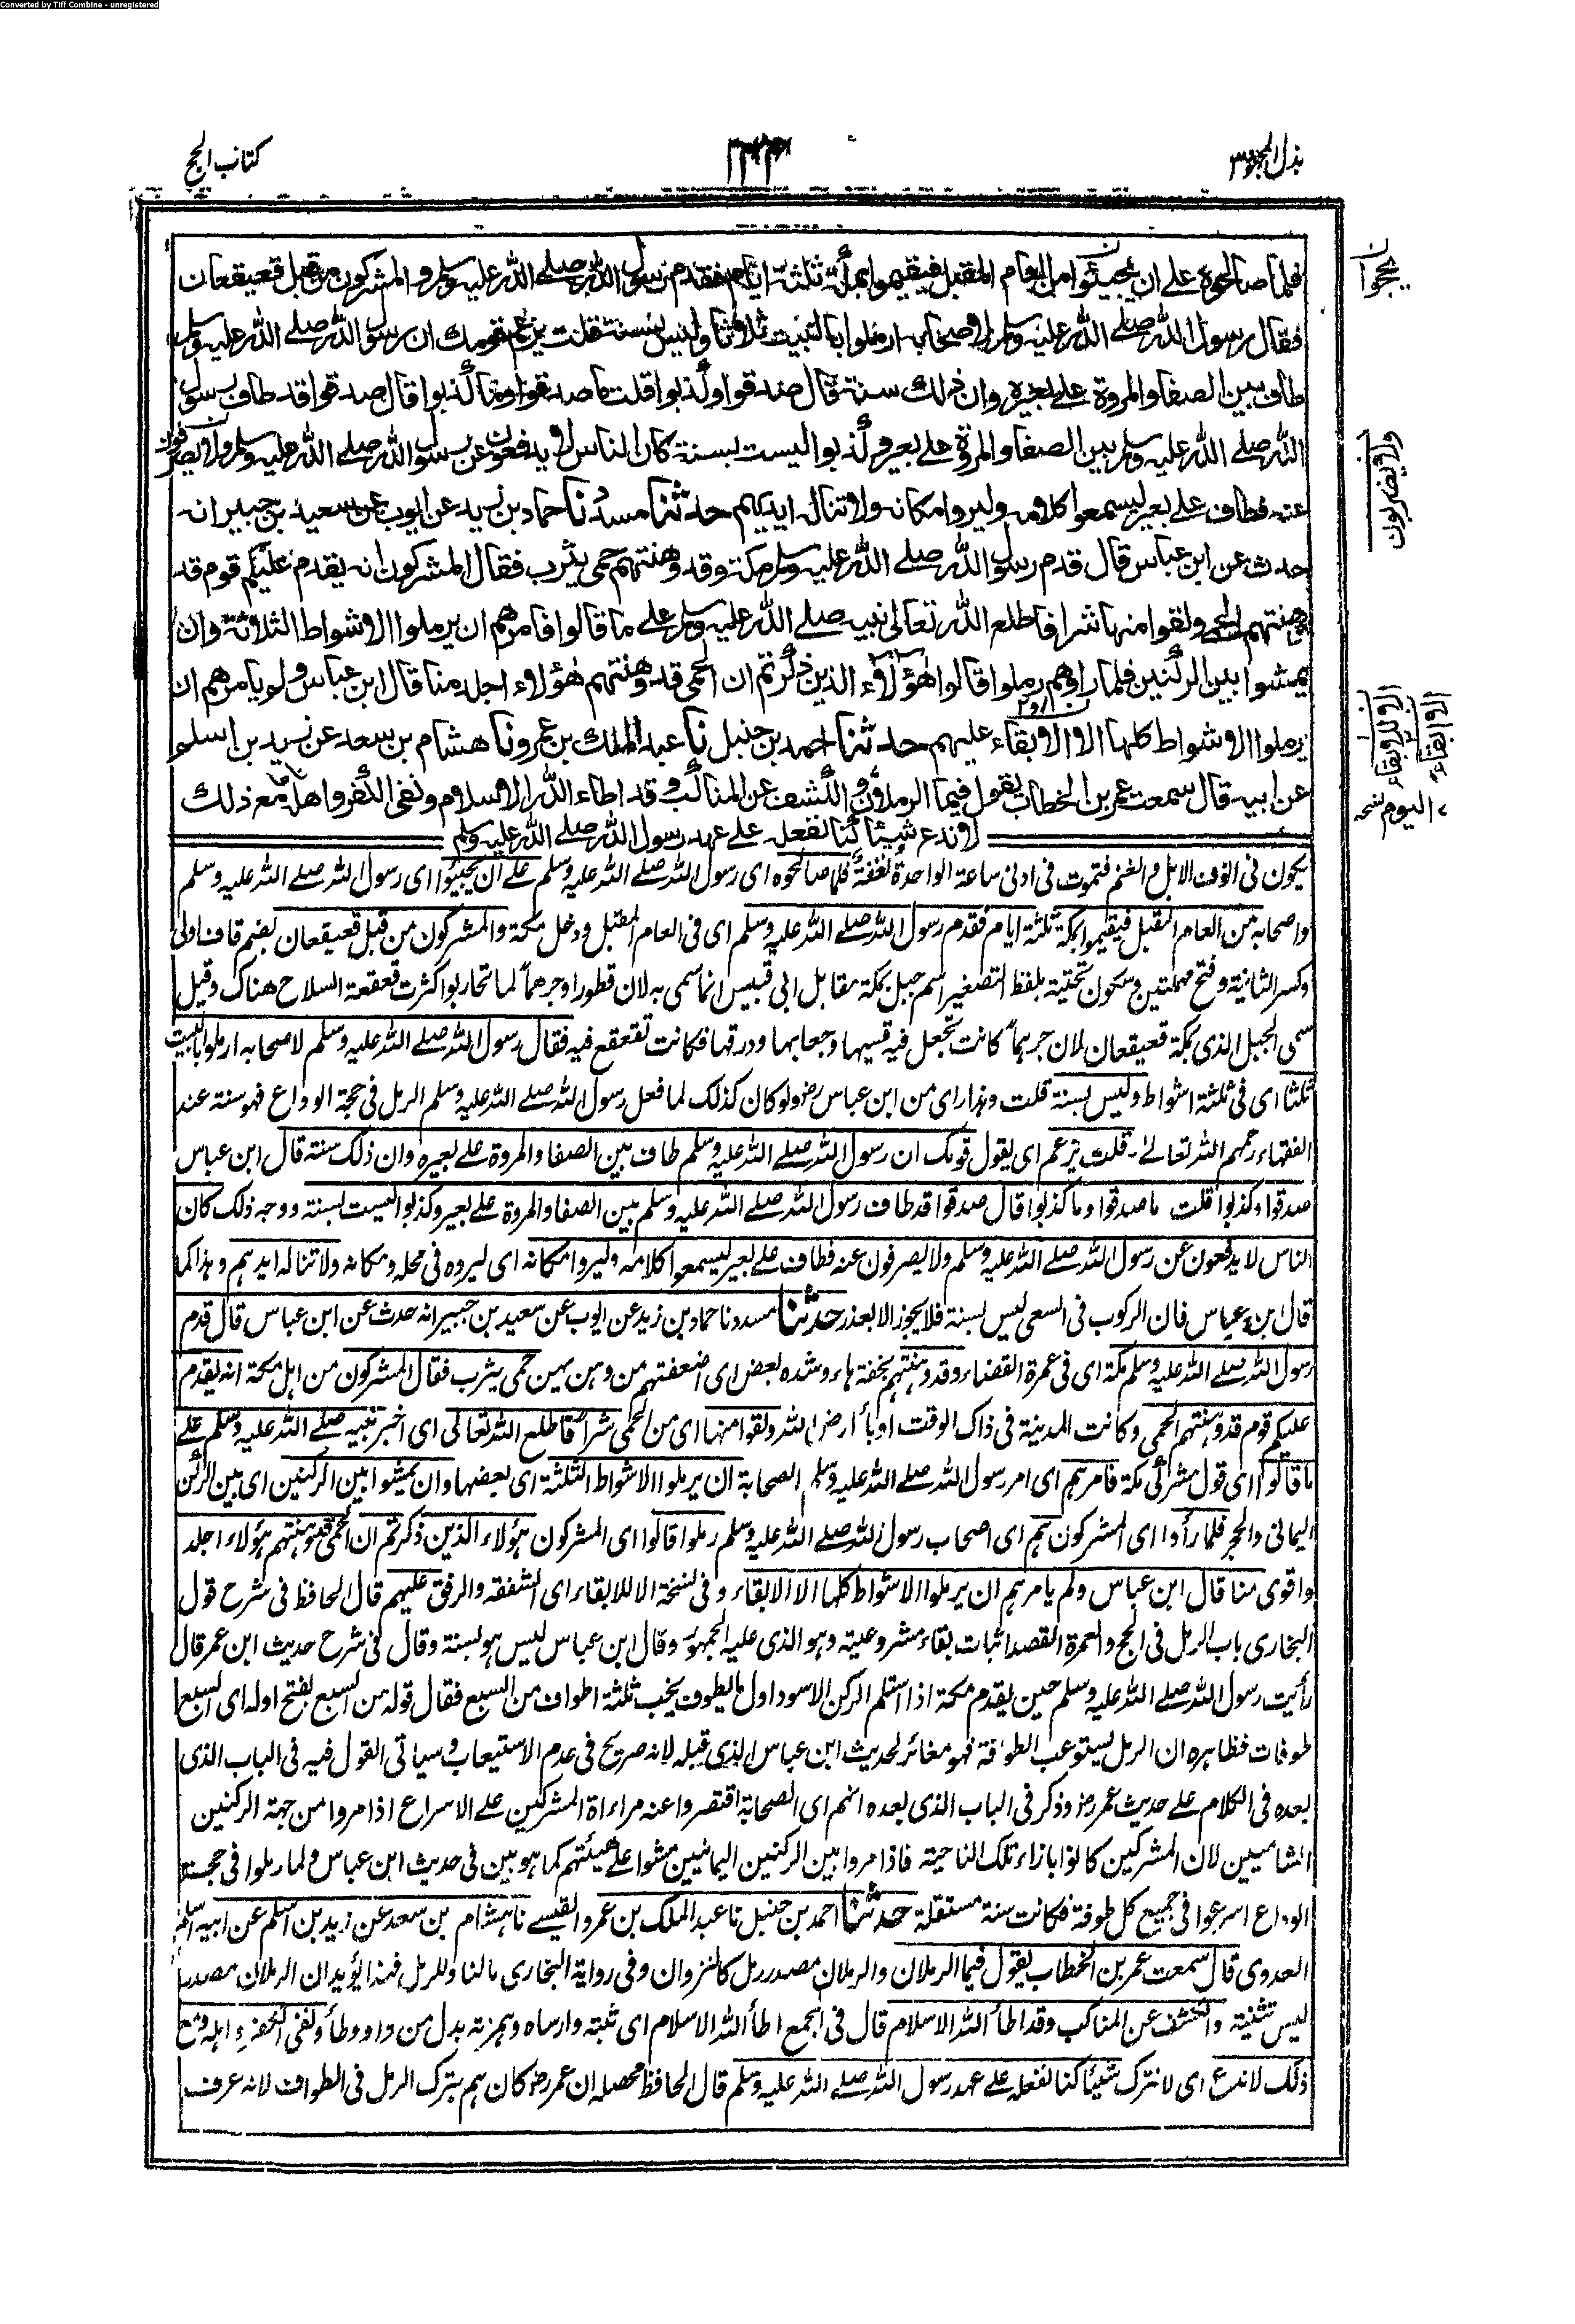 Converted by Tiff Combine - unregistered
بذل المجهود ٣
كتاب الحج
فلما صالحوه على ان يجيئوا من العام المقبل فيقيموا بمكة ثلثة ايام فقدم رسول الله صلے الله عليه وسلم والمشركون من قبل قعيقعان
فقال رسول الله صلے الله عليه وسلم لاصحابه ارملوا بالبيت ثلاثا وليس بسنة قلت يزعم قومك ان رسول الله صلے الله عليه وسلم
طاف بين الصفا والمروة على بعيره وان ذلك سنة قال صدقوا وكذبوا قلت ما صدقوا وما كذبوا قال صدقوا قد طاف رسول
الله صلے الله عليه وسلم بين الصفا والمروة على بعير وكذبوا ليست بسنة كان الناس لا يدفعون عن رسول الله صلے الله عليه وسلم ولا يصرفون
عنه فطاف على بعير ليسمعوا كلامه وليروا مكانه ولا تناله ايديهم حدثنا مسدد نا حماد بن زيد عن ايوب عن سعيد بن جبير انه
حدث عن ابن عباس قال قدم رسول الله صلے الله عليه وسلم مكة وقد وهنتهم حمى يثرب فقال المشركون انه يقدم عليكم قوم قد
وهنتهم الحمى ولقوا منها شرا فاطلع الله تعالى نبيه صلے الله عليه وسلم على ما قالوا فامرهم ان يرملوا الاشواط الثلاثة وان
يمشوا بين الركنين فلما راوهم رملوا قالوا هؤلاء الذين ذكرتم ان الحمى قد وهنتهم هؤلاء اجلد منا قال ابن عباس ولم يامرهم ان
يرملوا الاشواط كلها الا الابقاء عليهم حدثنا احمد بن حنبل نا عبد الملك بن عمرو نا هشام بن سعد عن زيد بن اسلم
عن ابيه قال سمعت عمر بن الخطاب يقول فيما الرملان والكشف عن المناكب وقد اطاء الله الاسلام ونفى الكفر واهله مع ذلك
لا ندع شيئا كنا نفعله على عهد رسول الله صلے الله عليه وسلم
يجوا
ولا يضربون
الا للابقاء
الا ابقاء
اليوم نسخه
يكون فى انوف الابل والغنم فتموت فى ادنى ساعة الواحدة نغفة فلما صالحوه اى رسول الله صلے الله عليه وسلم على ان يجيئوا اى رسول الله صلے الله عليه وسلم
واصحابه من العام المقبل فيقيموا بمكة ثلثة ايام فقدم رسول الله صلے الله عليه وسلم اى فى العام المقبل ودخل مكة والمشركون من قبل قعيقعان بضم قاف اولى
وكسر الثانية وفتح مهملتين وسكون تحتية بلفظ التصغير اسم جبل بمكة مقابل ابى قبيس انما سمى به لان قطورا وجرهماً لما تحاربوا كثرت قعقعة السلاح هناك وقيل
سمى الجبل الذى بمكة قعيقعان لان جرهماً كانت تجعل فيه قسيها وجعابها ودرقها فكانت تقعقع فيه فقال رسول الله صلے الله عليه وسلم لاصحابه ارملوا بالبيت
ثلثا اى فى ثلثة اشواط وليس بسنة قلت وهذا راى من ابن عباس رضـ ولو كان كذلك لما فعل رسول الله صلے الله عليه وسلم الرمل فى حجة الوداع فهو سنة عند
الفقهاء رحمهم الله تعالى۔ قلت يزعم اى يقول قومك ان رسول الله صلے الله عليه وسلم طاف بين الصفا والمروة على بعيره وان ذلك سنة قال ابن عباس
صدقوا وكذبوا قلت ما صدقوا وما كذبوا قال صدقوا قد طاف رسول الله صلے الله عليه وسلم بين الصفا والمروة على بعير وكذبوا ليست بسنة ووجه ذلك كان
الناس لا يدفعون عن رسول الله صلے الله عليه وسلم ولا يصرفون عنه فطاف على بعير ليسمعوا كلامه وليروا مكانه اى ليروه فى محله ومكانه ولا تناله ايديهم وهذا كما
قال ابن عباس فان الركوب فى السعى ليس بسنة فلا يجوز الا بعذر حدثنا مسدد نا حماد بن زيد عن ايوب عن سعيد بن جبير انه حدث عن ابن عباس قال قدم
رسول الله صلے الله عليه وسلم مكة اى فى عمرة القضاء وقد وهنتهم بخفة هاء وشده بعض اى اضعفتهم من وهن يهين حمى يثرب فقال المشركون من اهل مكة انه يقدم
عليكم قوم قد وهنتهم الحمى وكانت المدينة فى ذاك الوقت اوبأ ارض الله ولقوا منها اى من الحمى شراً فاطلع الله تعالى اى اخبر نبيه صلے الله عليه وسلم على
ما قالوا اى قول مشركى مكة فامرهم اى امر رسول الله صلے الله عليه وسلم الصحابة ان يرملوا الاشواط الثلثة اى بعضها وان يمشوا بين الركنين اى بين الركن
اليمانى والحجر فلما رأوا اى المشركون هم اى اصحاب رسول الله صلے الله عليه وسلم رملوا قالوا اى المشركون هؤلاء الذين ذكرتم ان الحمى قد وهنتهم هؤلاء اجلد
واقوى منا قال ابن عباس ولم يامرهم ان يرملوا الاشواط كلها الا الابقاء وفى نسخة الا للابقاء اى الشفقه والرفق عليهم قال الحافظ فى شرح قول
البخارى باب الرمل فى الحج والعمرة القصد اثبات بقاء مشروعيته وهو الذى عليه الجمهور وقال ابن عباس ليس هو بسنة وقال فى شرح حديث ابن عمر قال
رأيت رسول الله صلے الله عليه وسلم حين يقدم مكة اذا استلم الركن الاسود اول ما يطوف يخب ثلثة اطواف من السبع فقال قوله من السبع بفتح اوله اى السبع
طوفات فظاهره ان الرمل يستوعب الطوفة فهو مغائر لحديث ابن عباس الذى قبله لانه صريح فى عدم الاستيعاب وسياتى القول فيه فى الباب الذى
بعده فى الكلام على حديث عمر رضـ وذكر فى الباب الذى بعده انهم اى الصحابة اقتصروا عند مراءاة المشركين على الاسراع اذا مروا من جهة الركنين
الشاميين لان المشركين كانوا بازاء تلك الناحية فاذا مروا بين الركنين اليمانيين مشوا على هيئتهم كما هو بين فى حديث ابن عباس ولما رملوا فى حجة
الوداع اسرعوا فى جميع كل طوفة فكانت سنة مستقلة حدثنا احمد بن حنبل نا عبد الملك بن عمرو القيسے نا هشام بن سعد عن زيد بن اسلم عن ابيه اسلم
العدوى قال سمعت عمر بن الخطاب يقول فيما الرملان والرملان مصدر رمل كالنزوان وفى رواية البخارى ما لنا وللرمل فهذا يؤيد ان الرملان مصدر
ليس تثنية والكشف عن المناكب وقد اطأ الله الاسلام قال فى المجمع اطأ الله الاسلام اى ثبته وارساه وهمزته بدل من واو وطأ ونفى الكفر واهله ومع
ذلك لا ندع اى لا نترك شيئا كنا نفعله على عهد رسول الله صلے الله عليه وسلم قال الحافظ محصله ان عمر رضـ كان هم بترك الرمل فى الطواف لانه عرف